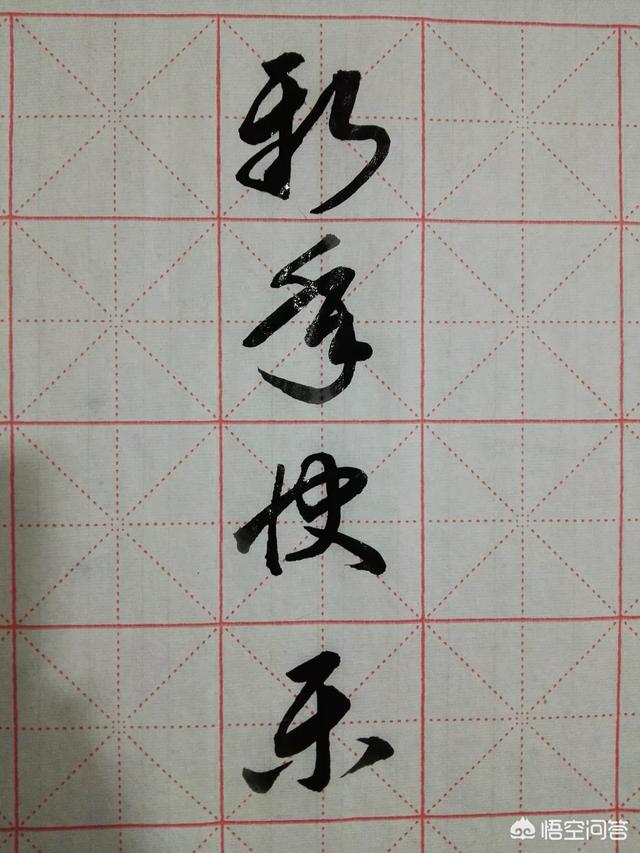 新年快乐
悟空问答